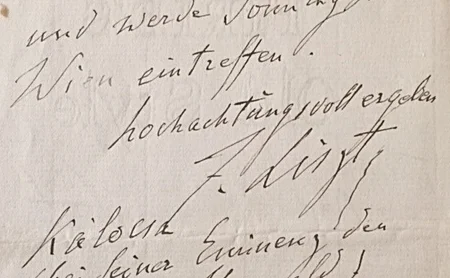 und werde Sonntag
Wien eintreffen.
hochachtungsvoll ergeben
F. Liszt
Kalocsa
bei seiner Eminenz den